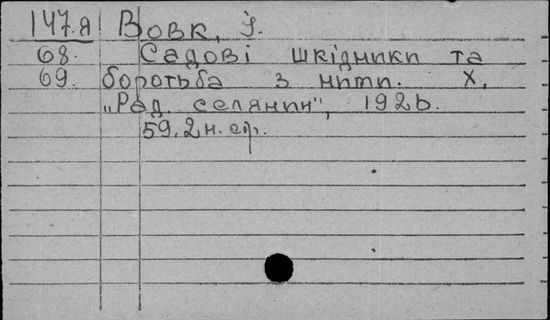 147.я Вовк, Й.
68. Садові шкідники та
69. боротьба з ними. Х.
„Рад. селянин", 1926.
59, 2 н. ср.